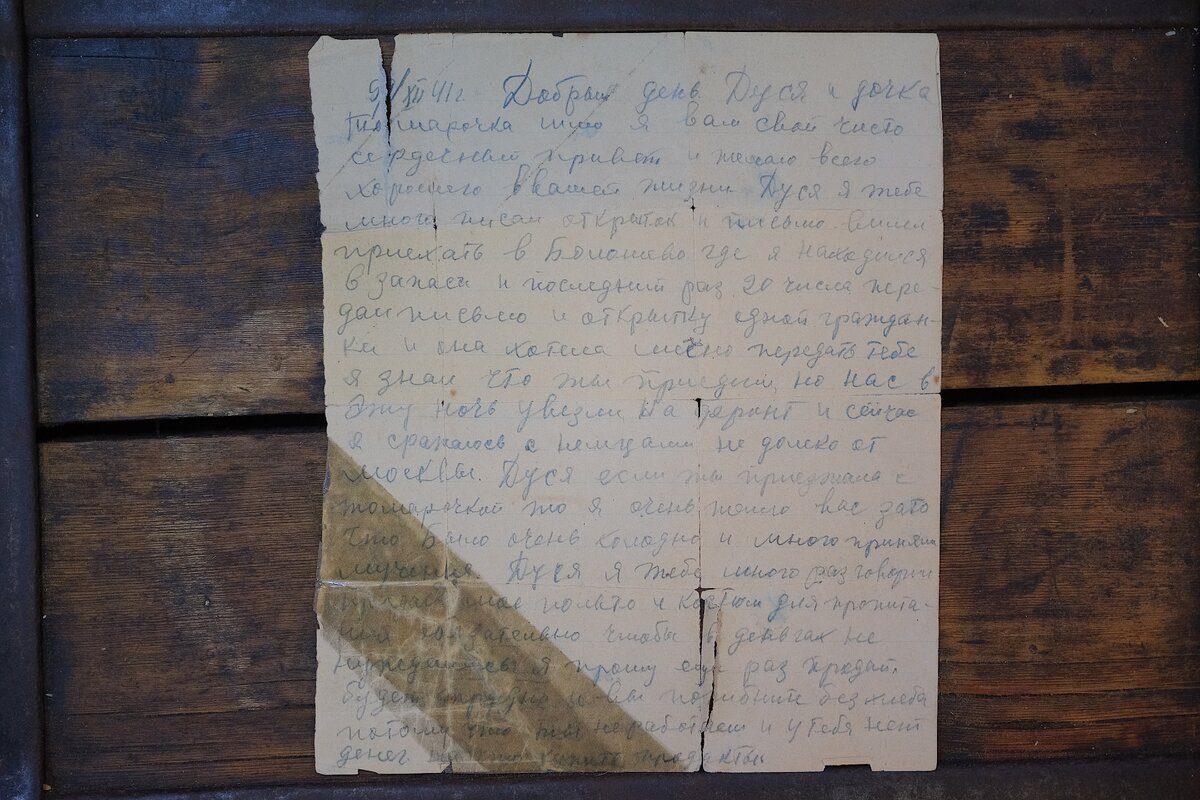 /XII 41г. Добрый день Дуся и дочка
Томарочка шлю я вам свой чисто
сердечный привет и желаю всего
хорошего в вашей жизни Дуся я тебе
много писал открыток и письмо
приехать в где я находился
в запаси и последний раз 20 числа пере-
дал письмо и открытку одной граждан-
ки и она хотела лично передать тебе
я знал что ты приедиш, но нас в
эту ночь увезли на фронт и сейчас
я сражаюсь с немцами не далеко от
Москвы. Дуся если ты приезжала с
томарочкой то я очень жалею вас зато
Што было очень холодно и много приняли
мучения Дуся я тебе много раз говорил
мое польто и костюм для пропита-
ния обязательно чтобы в деньгах не
я прошу еще раз продай.
будет трудно и вы погибните без хлеба
потому что ты не работаеш и у тебя нет
денег купить продукты